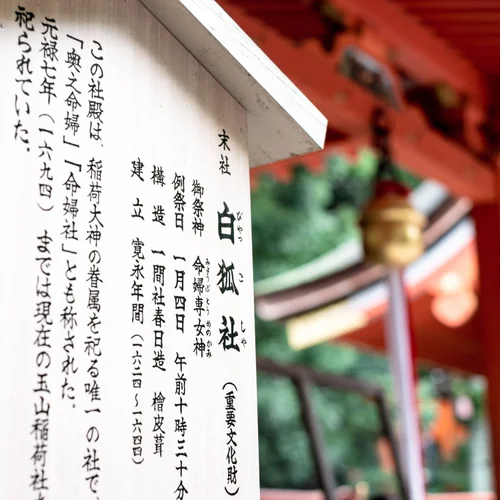 末社
白狐社(重要文化財)
びゃっこしゃ
御祭神 命婦専女神
みょうぶとうめのかみ
例祭日 一月四日 午前十時三十分
構造 一間社春日造 檜皮葺
建立 寛永年間(一六二四〜一六四四)
この社殿は、稲荷大神の眷属を祀る唯一の社で、
「奥之命婦」「命婦社」とも称された。
元禄七年(一六九四)までは現在の玉山稲荷社
祀られていた。